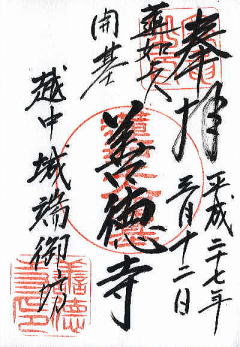 奉拝
平成二十七年
三月十二日
蓮如上人
開基
善徳寺
越中城端御坊